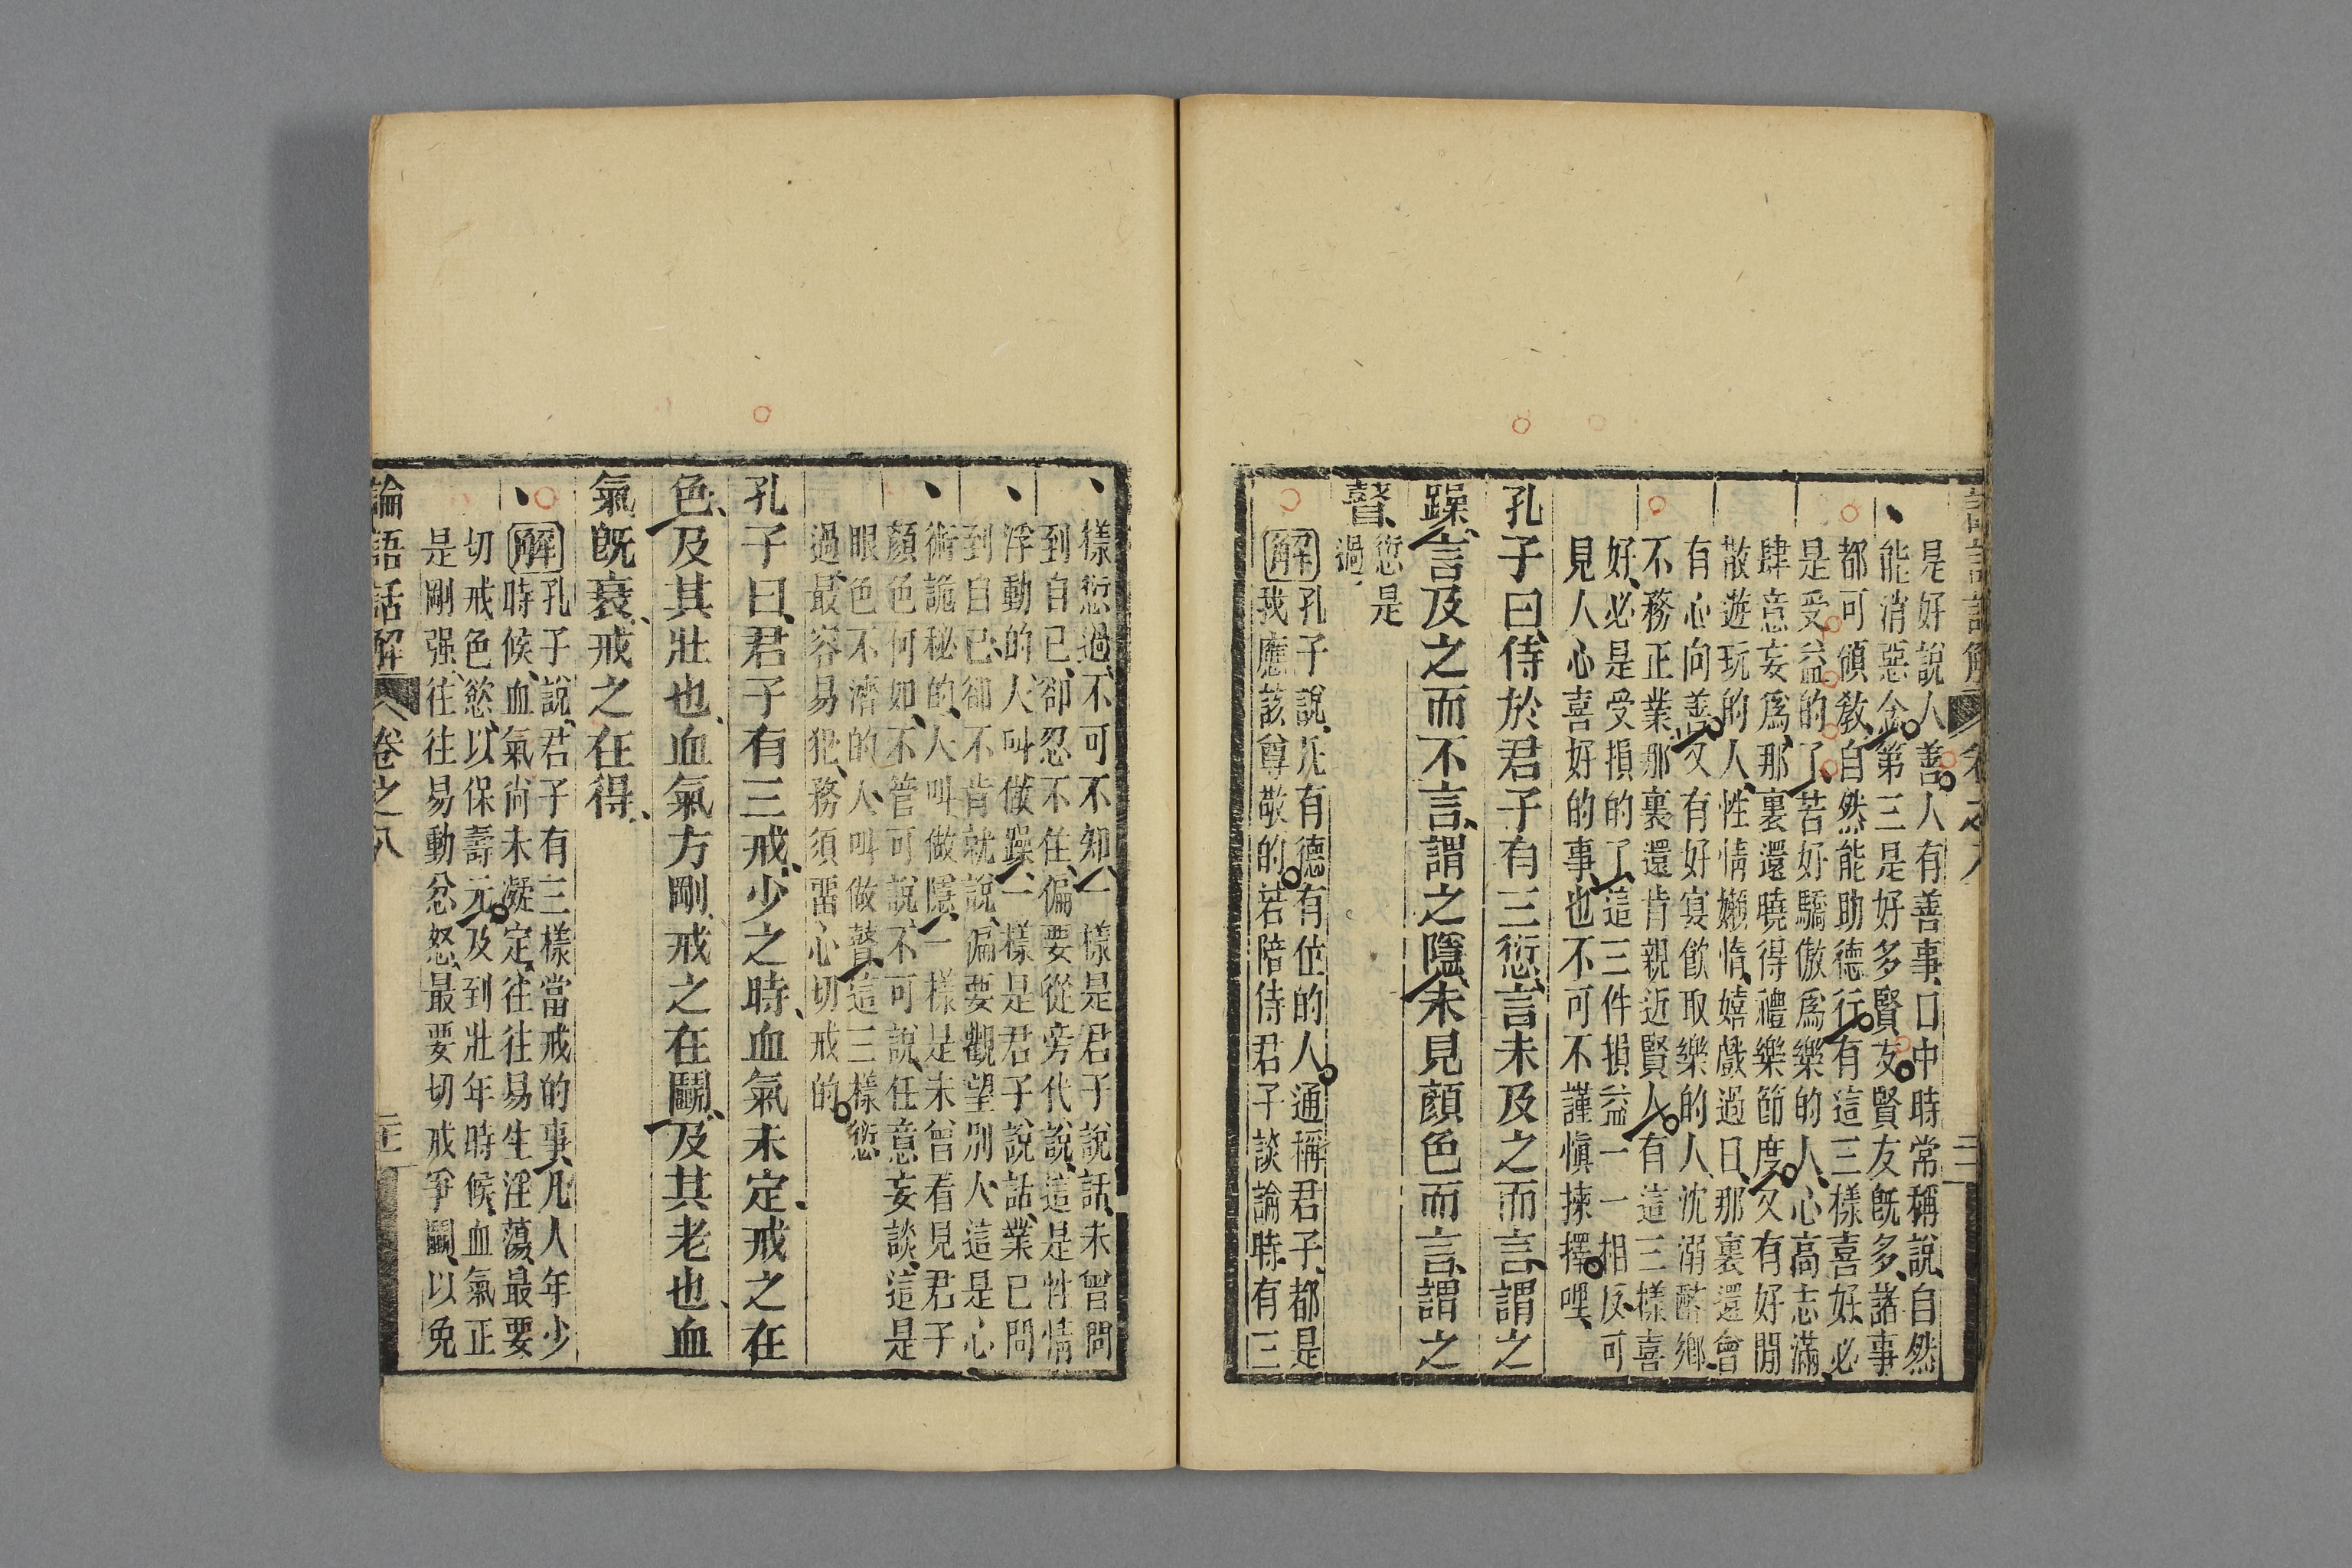 是好說人善人有善事口中時常稱說自然
能消惡念第三是好多賢友賢友旣多諸事
都可領敎自然能助德行有這三樣喜好必
是受益的了若好驕傲爲樂的人心高志滿
肆意妄爲那裏還曉得禮樂節度又有好閒
散遊玩的人性情嬾惰嬉戲過日那裏還會
有心向善又有好宴飮取樂的人沈溺醉鄉
不務正業那裏還肯親近賢人有這三樣喜
好必是受損的了這三件損益一一相反可
見人心喜好的事也不可不謹愼揀擇哩
孔子曰侍於君子有三愆言未及之而言謂之
躁言及之而不言謂之隱未見顏色而言謂之
瞽愆是
過
解孔子說凡有德有位的人通稱君子都是
我應該尊敬的若陪侍君子談論時有三
樣愆過不可不知一樣是君子說話未曾問
到自己卻忍不住偏要從旁代說這是性情
浮動的人叫做躁一樣是君子說話業已問
到自己卻不肯就說偏要觀望別人這是心
術詭秘的人叫做隱一樣是未曾看見君子
顏色何如不管可說不可說任意妄談這是
眼色不濟的人叫做瞽這三樣愆
過最容易犯務須畱心切戒的
孔子曰君子有三戒少之時血氣未定戒之在
色及其壯也血氣方剛戒之在鬭及其老也血
氣旣衰戒之在得
解孔子說君子有三樣當戒的事凡人年少
時候血氣尚未凝定往往易生淫蕩最要
切戒色慾以保壽元及到壯年時候血氣正
是剛强往往易動忿怒最要切戒爭鬭以免
論語話解 卷之八